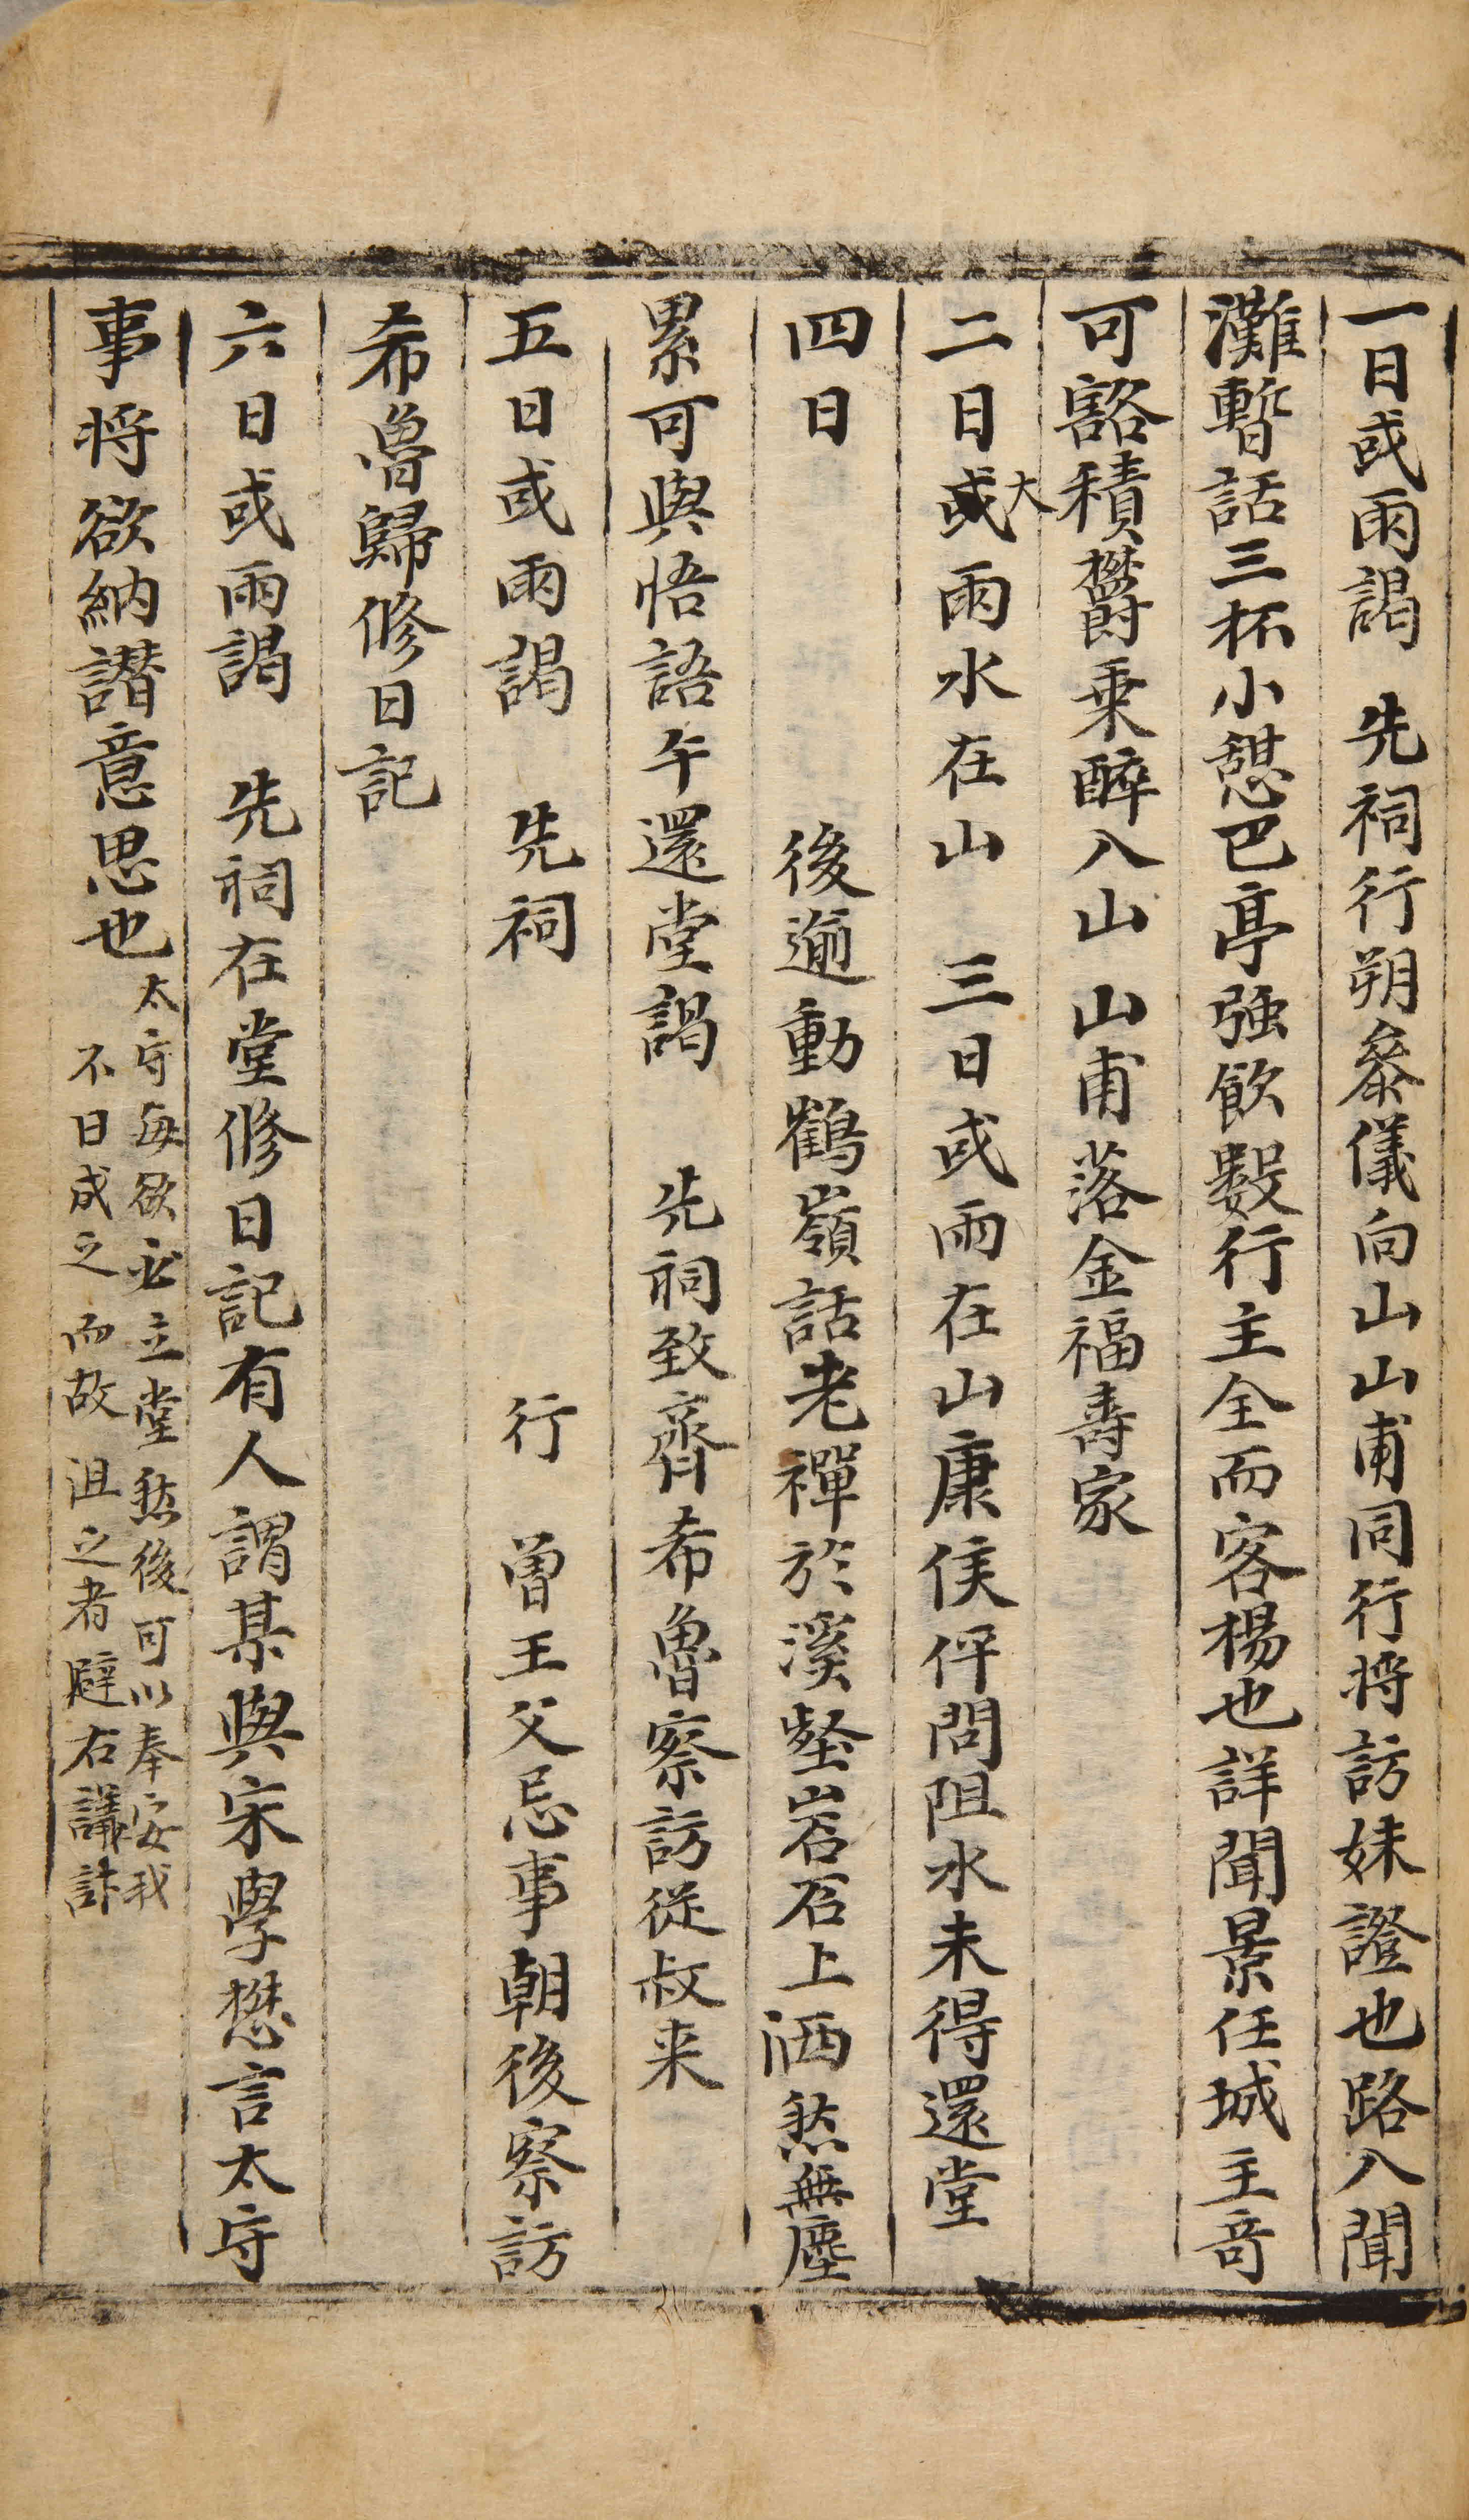 一日或雨謁　先祠行朔參儀向山山甫同行將訪妹證也路入聞
灘暫話三杯小憩巴亭强飮數行主全而客楊也詳聞景任城主奇
可豁積欝乘醉入山　山甫落金福壽家
二日或大雨水在山　三日或雨在山康侯伻問阻水未得還堂
四日　後逾動鶴嶺話老禪於溪壑岩石上洒然無塵
累可與悟語午還堂謁　先祠致齊希魯察訪從叔来
五日或雨謁　先祠　行　曾王父忌事朝後察訪
希魯歸修日記
六日或雨謁　先祠在堂修日記有人謂某與宋學懋言太守
事將欲納譛意思也
太守每欲必立堂然後可以奉安我
不日成之而故沮之者避右議訴